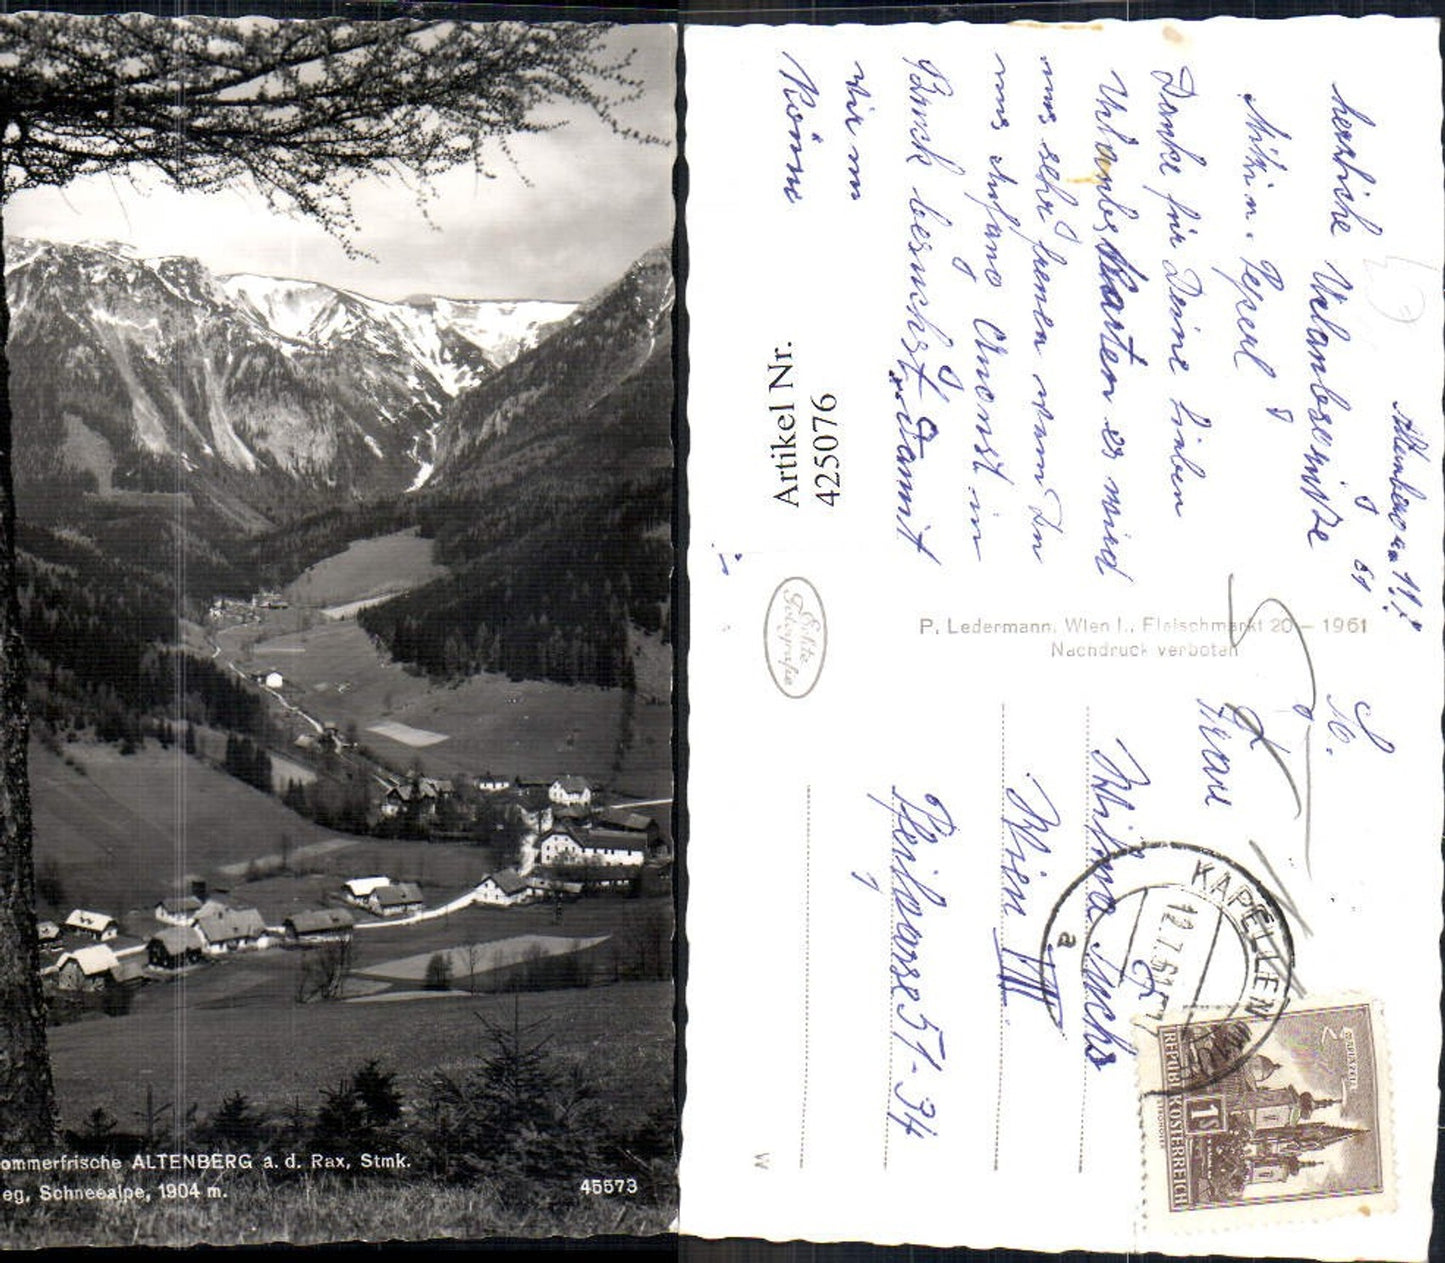 ommerfrische ALTENBERG a. d. Rax, Stmk.
eg, Schneealpe, 1904 m.
45573
Altenberg am 11.7.
61
herzliche Urlaubsgrüße
Mitzi u. Peperl
Danke für Deine lieben
Urlaubskarten es wird
uns sehr freuen wenn Du
uns Anfang August in
Bruck besuchst. Damit
wir um
Artikel Nr.
425076
Echte
Fotografie
P. Ledermann, Wien I., Fleischmarkt 20 – 1961
Nachdruck verboten
Frau
Wilma Fuchs
Wien VIII
Pfeilgasse 51-34
KAPELLEN
12.7.61
a
REPUBLIK ÖSTERREICH
1 S
MARIAZELL
W